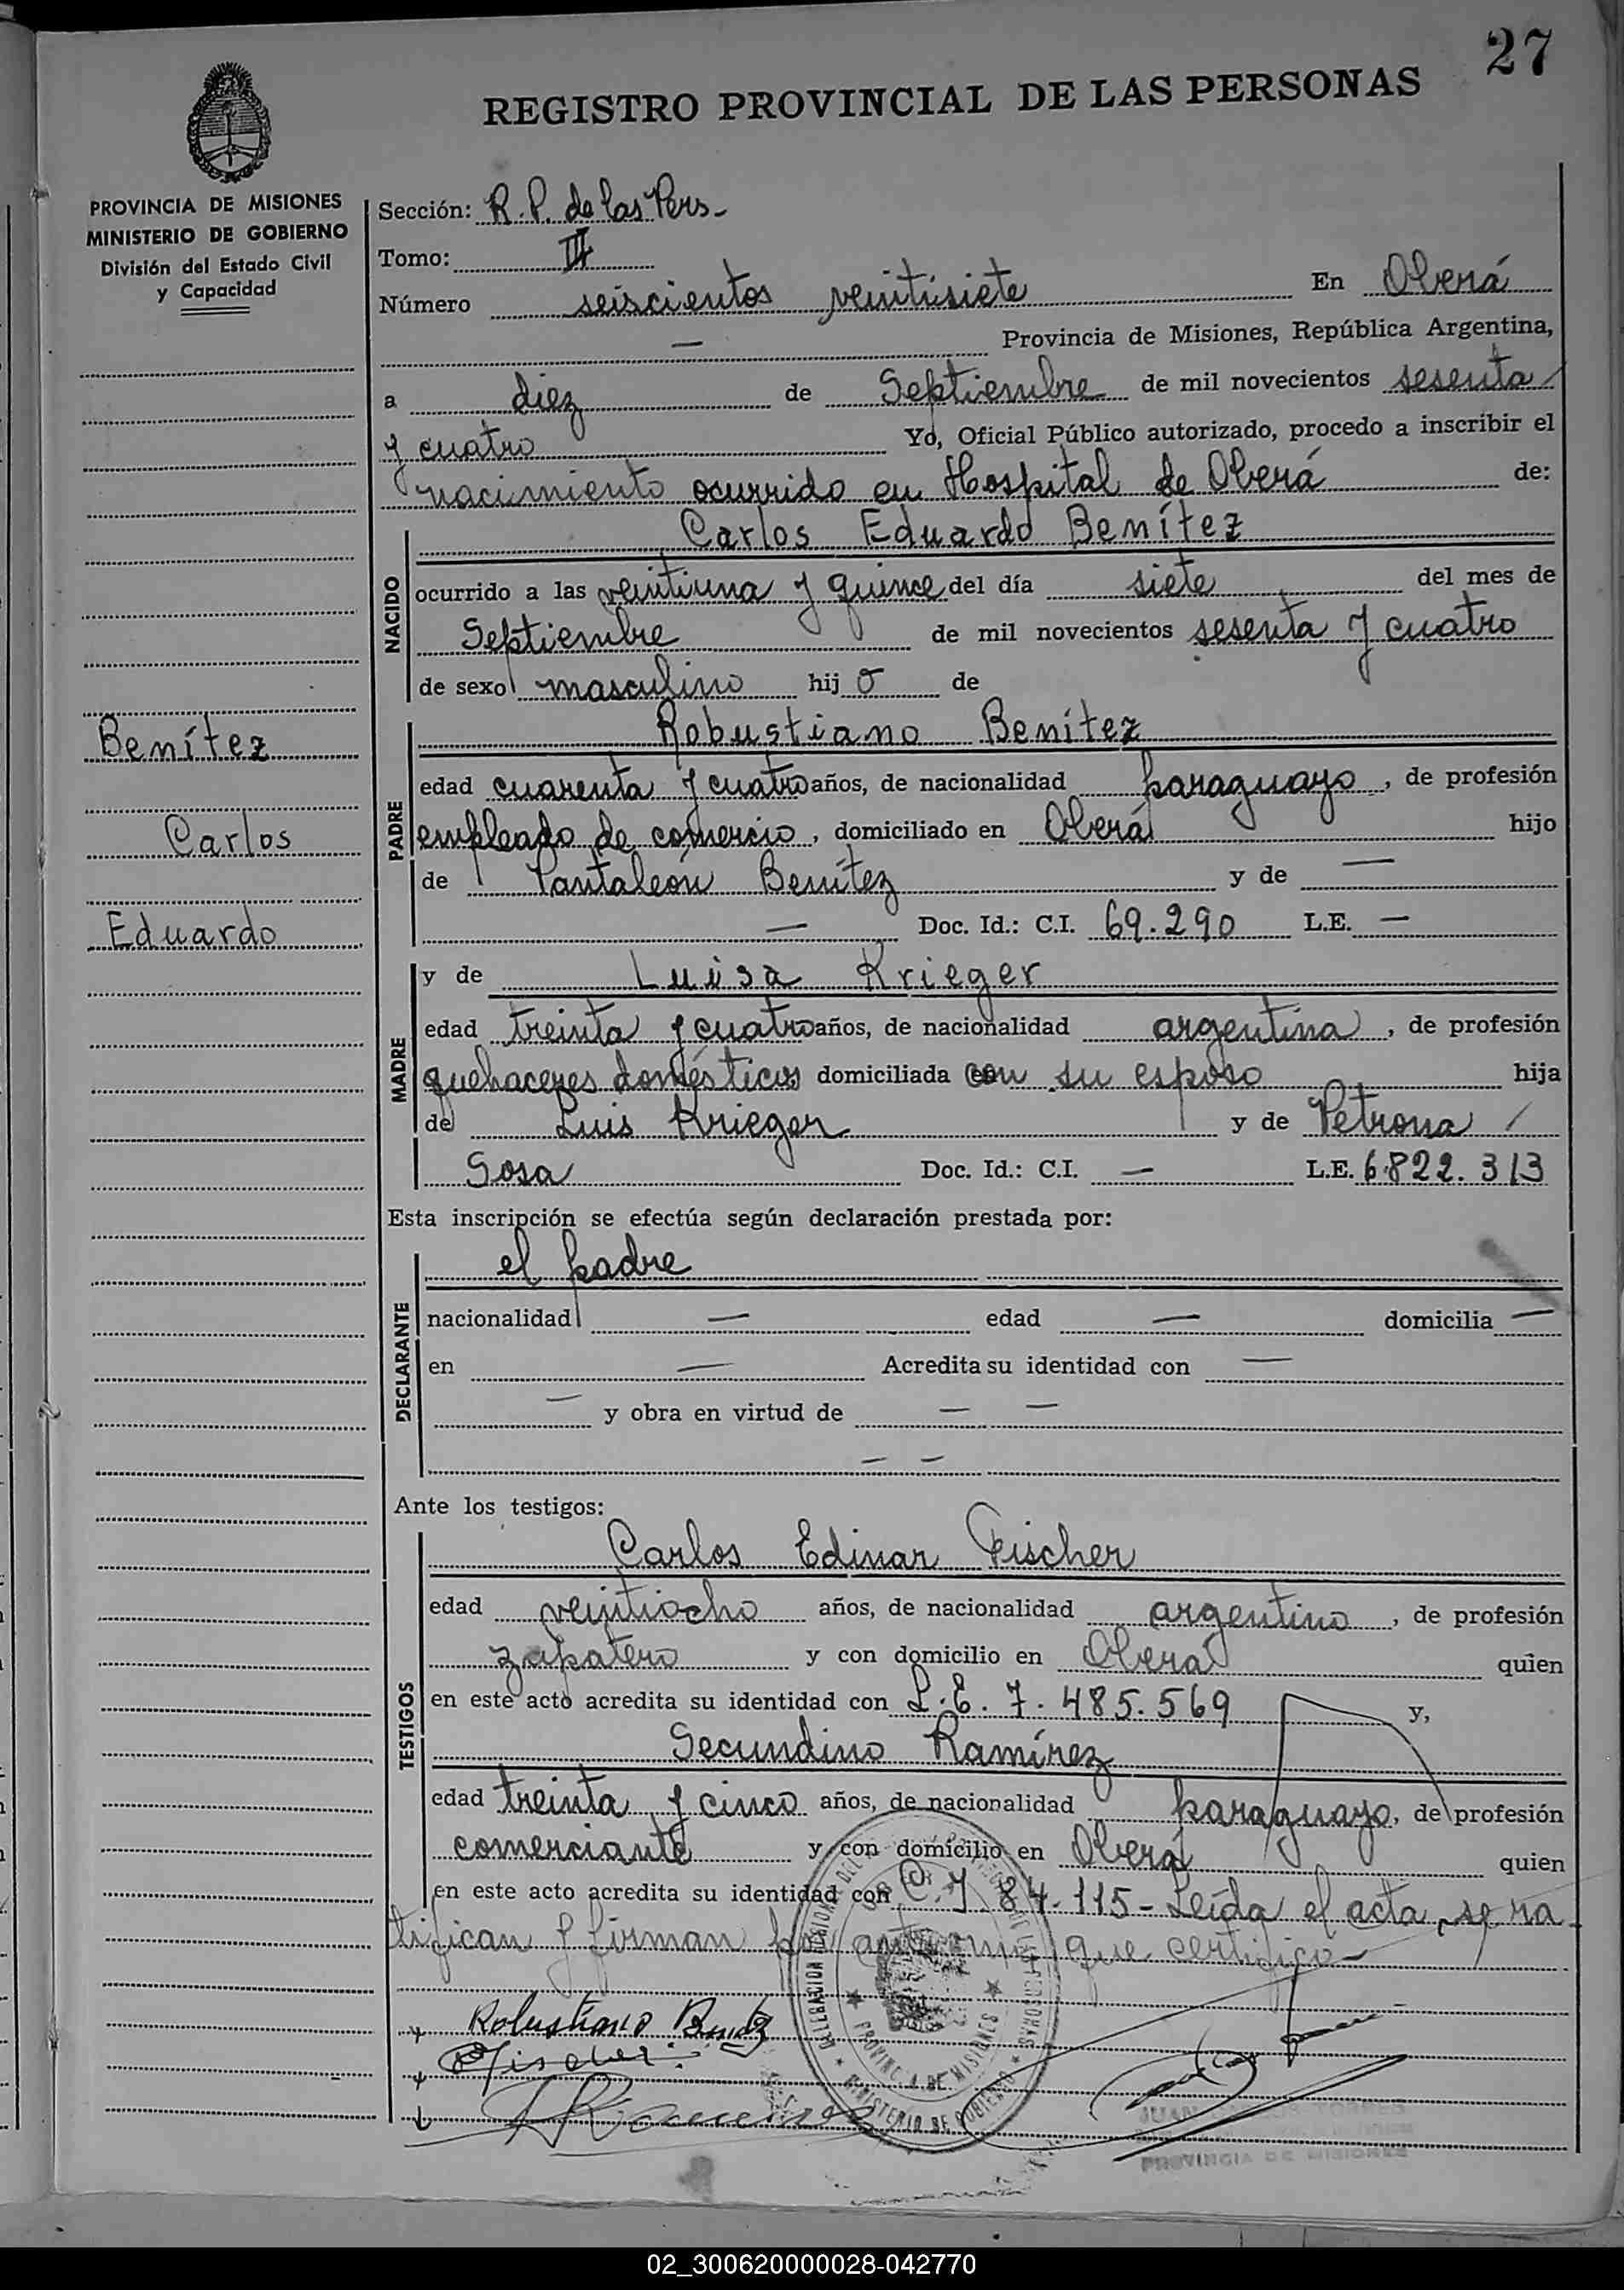 27
REGISTRO PROVINCIAL DE LAS PERSONAS
PROVINCIA DE MISIONES
MINISTERIO DE GOBIERNO
División del Estado Civil
y Capacidad
Benítez
Carlos
Eduardo
Sección: R.P. de las Pers-
Tomo: III
Número seiscientos veintisiete En Oberá
— Provincia de Misiones, República Argentina,
a diez de Septiembre de mil novecientos sesenta
y cuatro Yo, Oficial Público autorizado, procedo a inscribir el
nacimiento ocurrido en Hospital de Oberá de:
NACIDO
Carlos Eduardo Benítez
ocurrido a las veintiuna y quince del día siete del mes de
Septiembre de mil novecientos sesenta y cuatro
de sexo masculino hij o de
PADRE
Robustiano Benítez
edad cuarenta y cuatro años, de nacionalidad paraguayo, de profesión
empleado de comercio, domiciliado en Oberá hijo
de Pantaleón Benítez y de —
— Doc. Id.: C.I. 69.290 L.E. —
MADRE
y de Luisa Krieger
edad treinta y cuatro años, de nacionalidad argentina, de profesión
quehaceres domésticos domiciliada con su esposo hija
de Luis Krieger y de Petrona /
Sosa Doc. Id.: C.I. — L.E. 6.822.313
Esta inscripción se efectúa según declaración prestada por:
DECLARANTE
el padre
nacionalidad — edad — domicilia —
en — Acredita su identidad con —
— y obra en virtud de — —
— —
Ante los testigos:
TESTIGOS
Carlos Edinar Fischer
edad veintiocho años, de nacionalidad argentino, de profesión
zapatero y con domicilio en Oberá quien
en este acto acredita su identidad con L.E. 7.485.569 y,
Secundino Ramírez
edad treinta y cinco años, de nacionalidad paraguayo, de profesión
comerciante y con domicilio en Oberá quien
en este acto acredita su identidad con C.I 84.115- Leída el acta, se ra
tifican y firman por ante mí que certifico-
Robustiano Benítez
Fischer
PROVINCIA DE MISIONES
MINISTERIO DE GOBIERNO
JUAN TORRES
PROVINCIA DE MISIONES
02_300620000028-042770